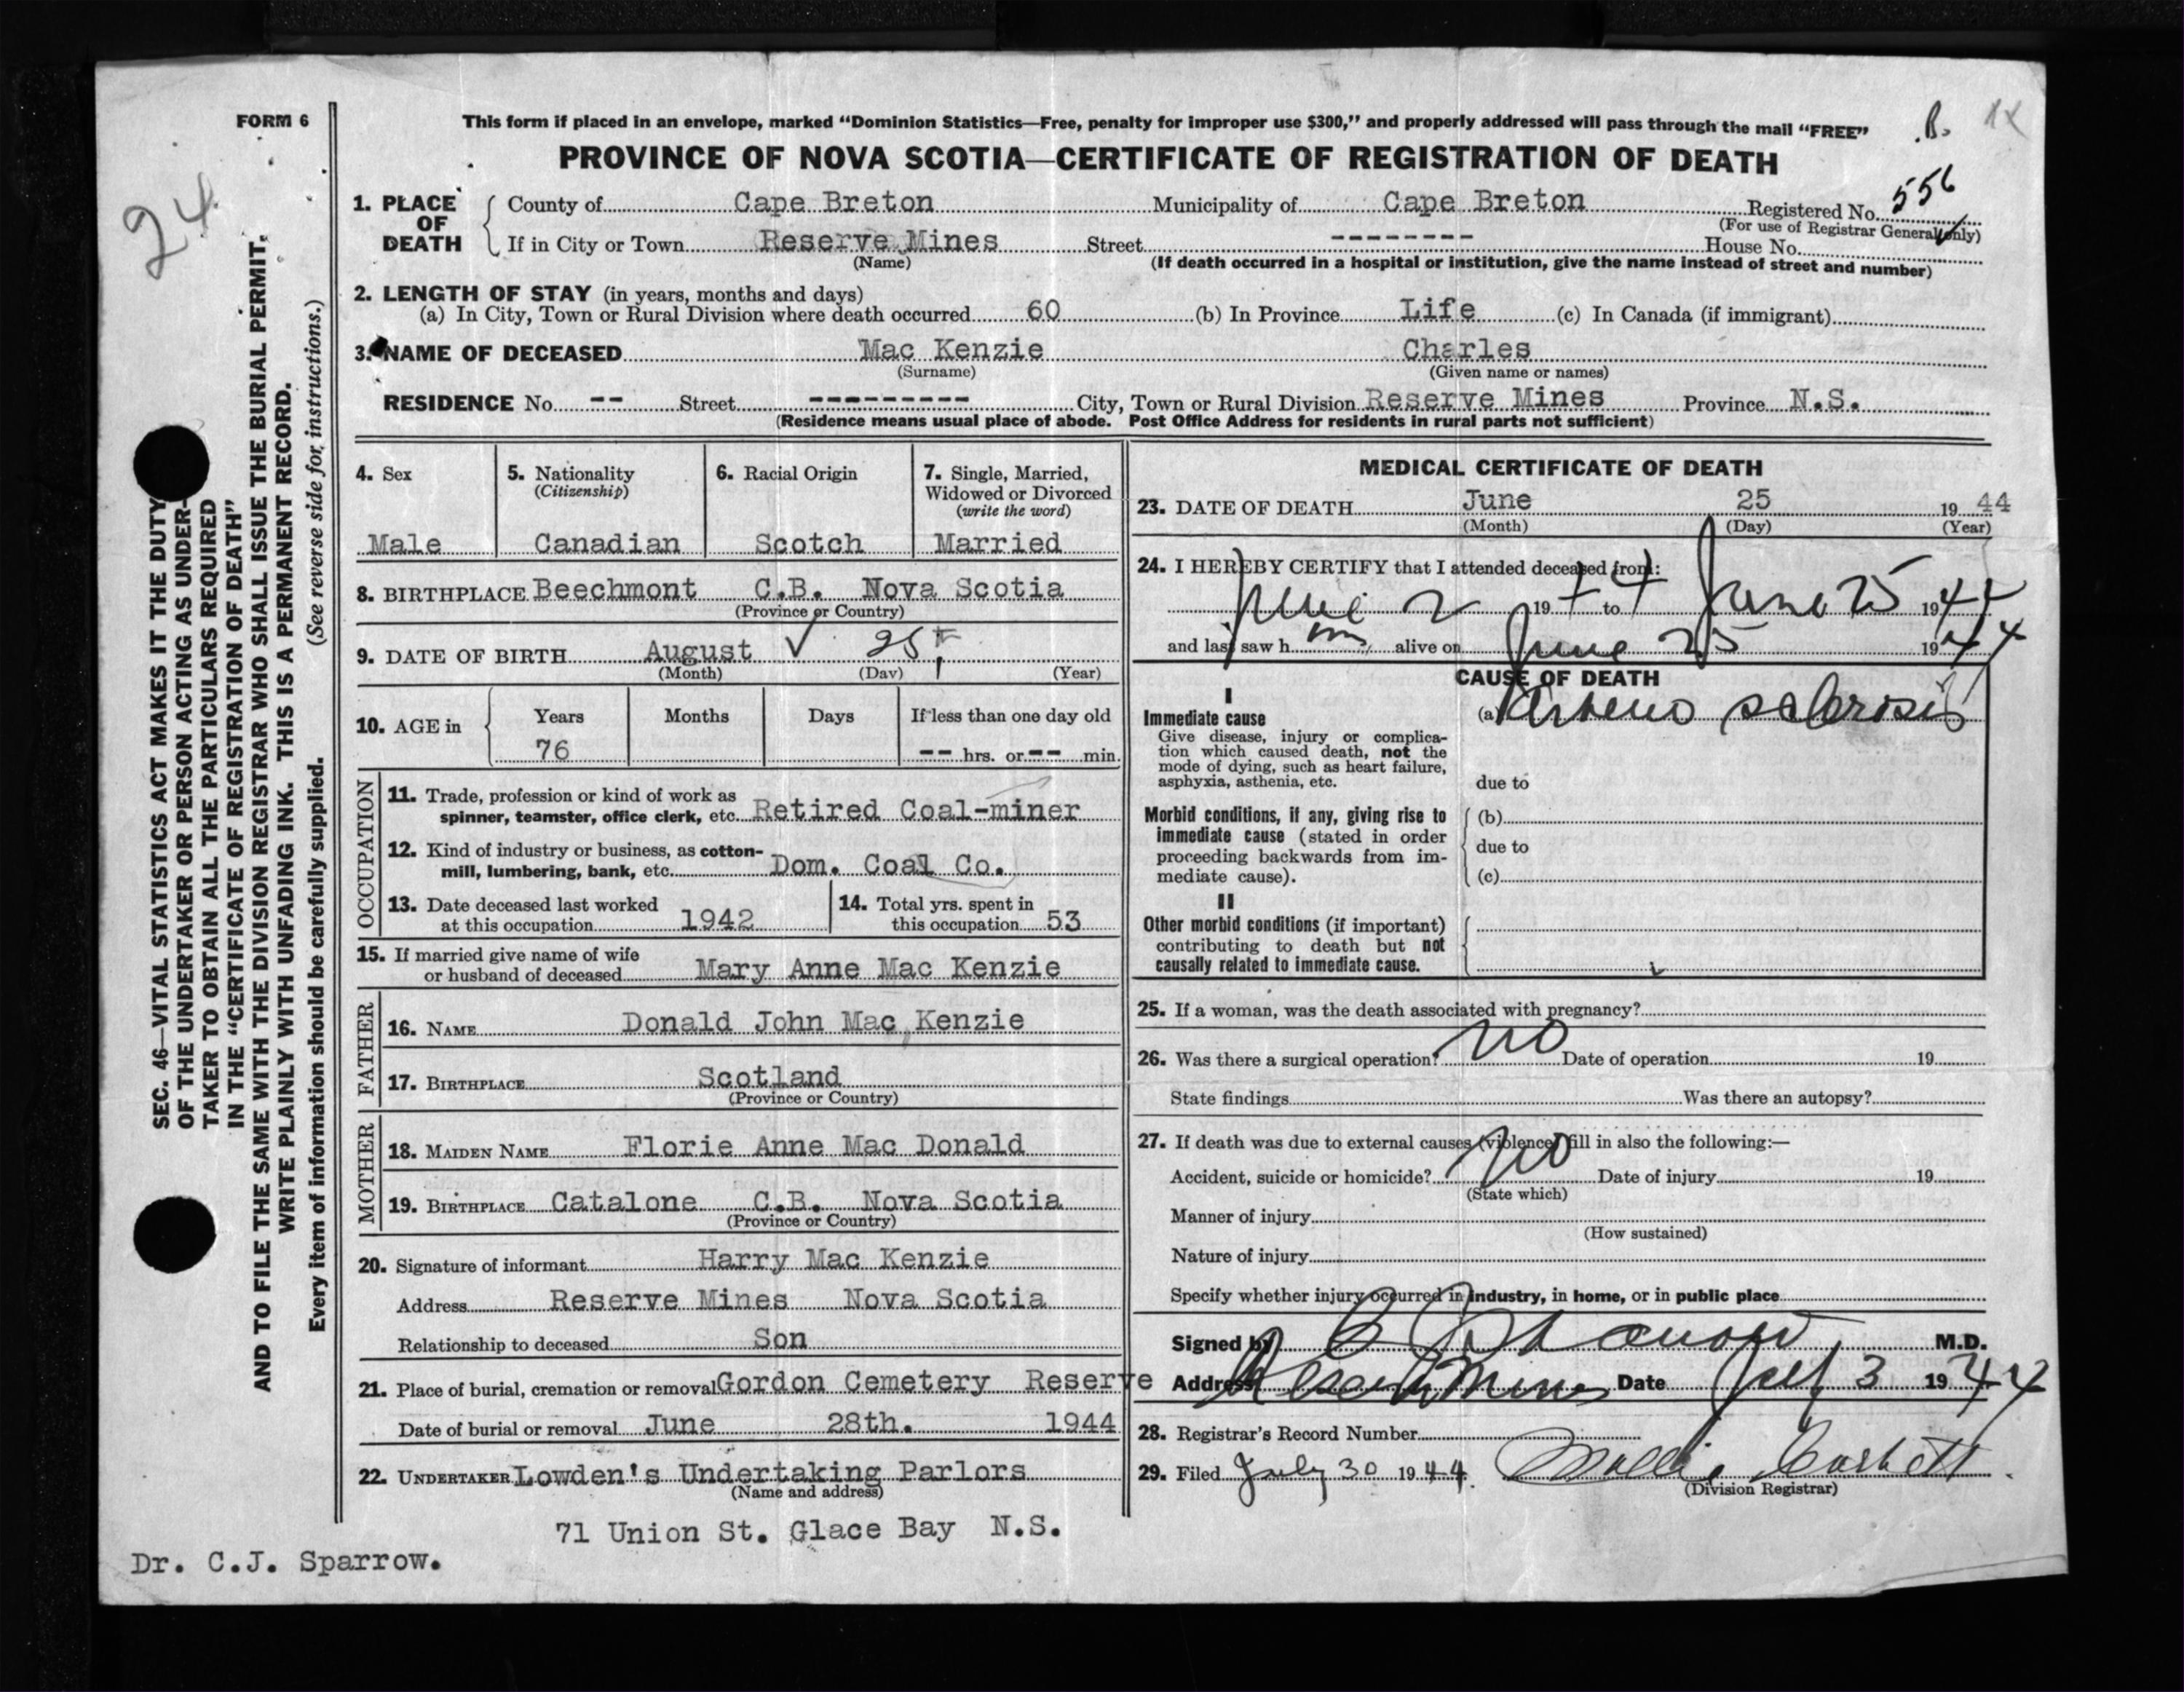 FORM 6
24
B.
This form if placed in an envelope, marked "Dominion Statistics—Free, penalty for improper use $300," and properly addressed will pass through the mail "FREE"
PROVINCE OF NOVA SCOTIA—CERTIFICATE OF REGISTRATION OF DEATH
1. PLACE OF DEATH
County of Cape Breton Municipality of Cape Breton Registered No. 556
(For use of Registrar General only)
If in City or Town Reserve Mines Street -------- House No.
(Name) (If death occurred in a hospital or institution, give the name instead of street and number)
2. LENGTH OF STAY (in years, months and days)
(a) In City, Town or Rural Division where death occurred 60 (b) In Province Life (c) In Canada (if immigrant)
3. NAME OF DECEASED Mac Kenzie Charles
(Surname) (Given name or names)
RESIDENCE No. -- Street --------- City, Town or Rural Division Reserve Mines Province N.S.
(Residence means usual place of abode. Post Office Address for residents in rural parts not sufficient)
4. Sex
Male
5. Nationality
(Citizenship)
Canadian
6. Racial Origin
Scotch
7. Single, Married,
Widowed or Divorced
(write the word)
Married
8. BIRTHPLACE Beechmont C.B. Nova Scotia
(Province or Country)
9. DATE OF BIRTH August 25
(Month) (Day) (Year)
10. AGE in
Years Months Days If less than one day old
76 -- hrs. or -- min.
OCCUPATION
11. Trade, profession or kind of work as
spinner, teamster, office clerk, etc. Retired Coal-miner
12. Kind of industry or business, as cotton-
mill, lumbering, bank, etc. Dom. Coal Co.
13. Date deceased last worked
at this occupation 1942
14. Total yrs. spent in
this occupation 53
15. If married give name of wife
or husband of deceased Mary Anne Mac Kenzie
FATHER
16. NAME Donald John Mac Kenzie
17. BIRTHPLACE Scotland
(Province or Country)
MOTHER
18. MAIDEN NAME Florie Anne Mac Donald
19. BIRTHPLACE Catalone C.B. Nova Scotia
(Province or Country)
20. Signature of informant Harry Mac Kenzie
Address Reserve Mines Nova Scotia
Relationship to deceased Son
21. Place of burial, cremation or removal Gordon Cemetery Reserve
Date of burial or removal June 28th. 1944
22. UNDERTAKER Lowden's Undertaking Parlors
(Name and address)
71 Union St. Glace Bay N.S.
Dr. C.J. Sparrow.
MEDICAL CERTIFICATE OF DEATH
23. DATE OF DEATH June 25 19 44
(Month) (Day) (Year)
24. I HEREBY CERTIFY that I attended deceased from:
June 2 1944 to June 25 1944
and last saw him alive on June 25 1944
CAUSE OF DEATH
I
Immediate cause
Give disease, injury or complica-
tion which caused death, not the
mode of dying, such as heart failure,
asphyxia, asthenia, etc.
(a) Arterio sclerosis
due to
Morbid conditions, if any, giving rise to
immediate cause (stated in order
proceeding backwards from im-
mediate cause).
(b)
due to
(c)
II
Other morbid conditions (if important)
contributing to death but not
causally related to immediate cause.
25. If a woman, was the death associated with pregnancy?
26. Was there a surgical operation? no Date of operation 19
State findings Was there an autopsy?
27. If death was due to external causes (violence) fill in also the following:—
Accident, suicide or homicide? no Date of injury 19
(State which)
Manner of injury
(How sustained)
Nature of injury
Specify whether injury occurred in industry, in home, or in public place
Signed by C J Sparrow M.D.
Address Reserve Mines Date July 3 1944
28. Registrar's Record Number
29. Filed July 30 1944. Mollie Corbett
(Division Registrar)
SEC. 46—VITAL STATISTICS ACT MAKES IT THE DUTY
OF THE UNDERTAKER OR PERSON ACTING AS UNDER-
TAKER TO OBTAIN ALL THE PARTICULARS REQUIRED
IN THE "CERTIFICATE OF REGISTRATION OF DEATH"
AND TO FILE THE SAME WITH THE DIVISION REGISTRAR WHO SHALL ISSUE THE BURIAL PERMIT.
WRITE PLAINLY WITH UNFADING INK. THIS IS A PERMANENT RECORD.
Every item of information should be carefully supplied. (See reverse side for instructions.)